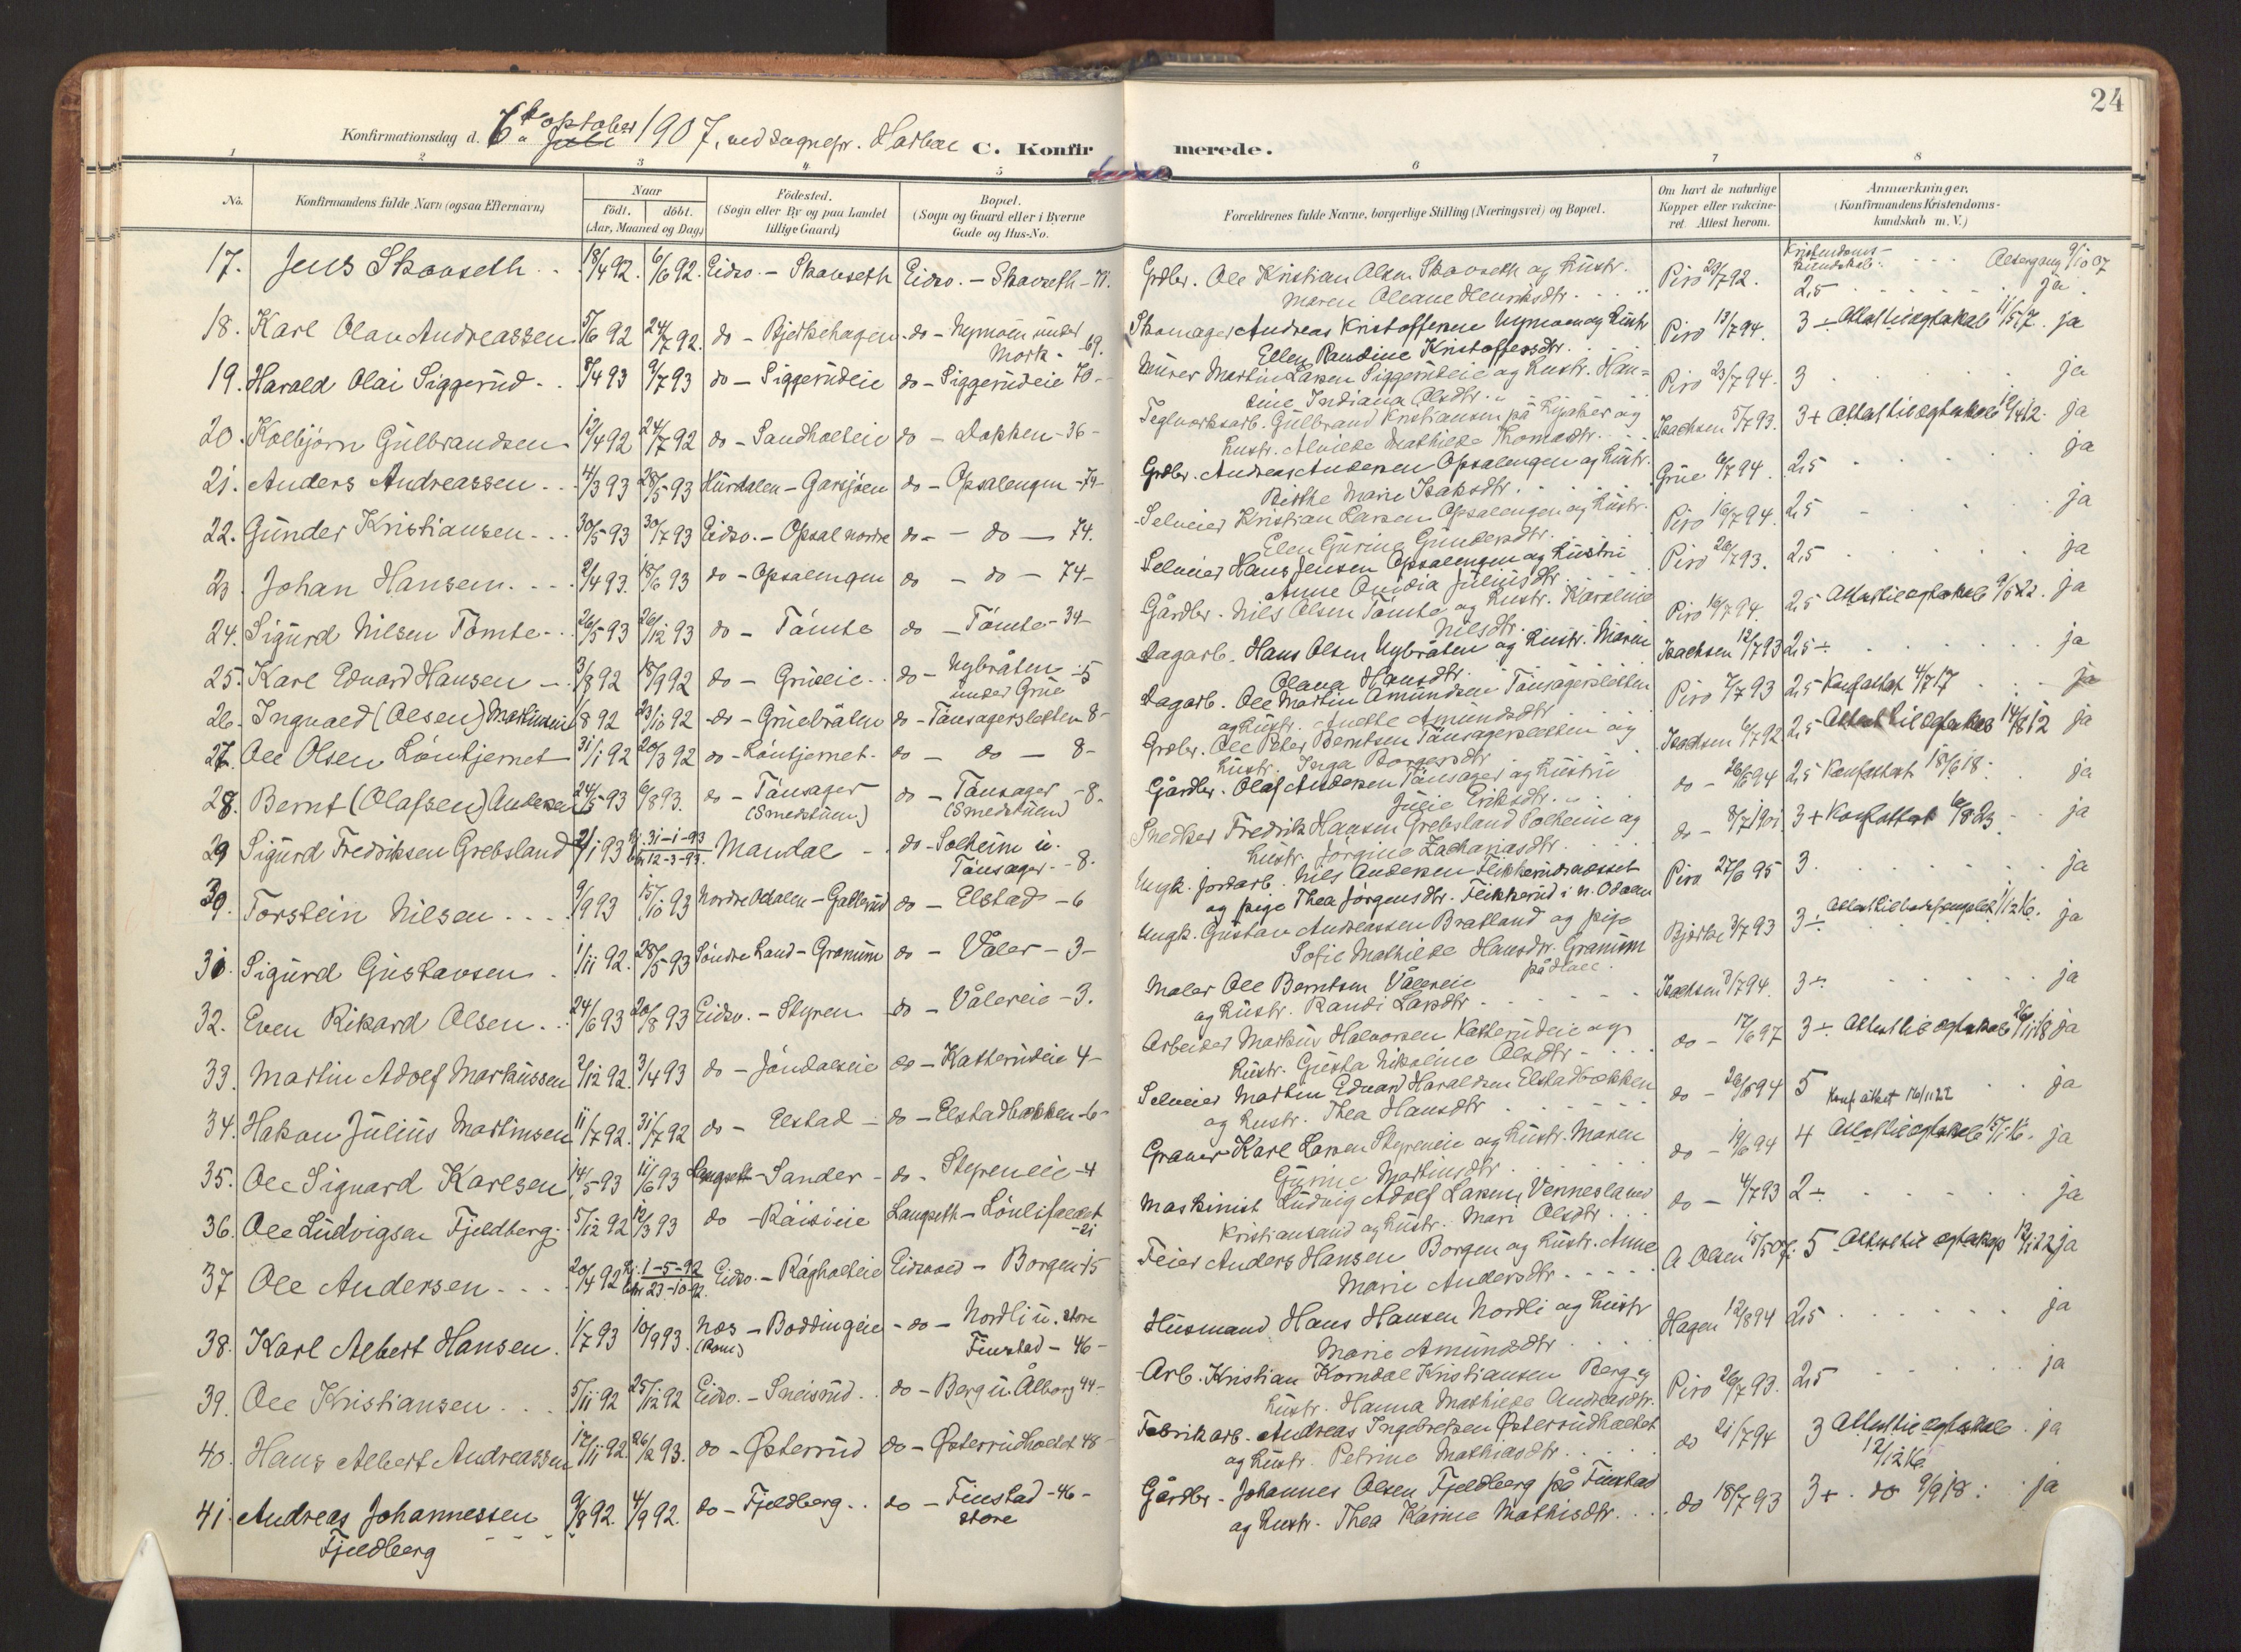 24
Konfirmationsdag d. 6te oktober 1907, ved sognepr. Harbo C. Konfirmerede.
1 2 3 4 5 6 7 8
No. Konfirmandens fulde Navn (ogsaa Efternavn) Naar födt. döbt. (Aar, Maaned og Dag) Födested. (Sogn eller By og paa Landet tillige Gaard) Bopæl. (Sogn og Gaard eller i Byerne Gade og Hus-No.
Forældrenes fulde Navne, borgerlige Stilling (Næringsvei) og Bopæl. Om havt de naturlige Kopper eller vakcineret. Attest herom. Anmærkninger. (Konfirmandens Kristendomskundskab m. V.)
Kristendomskundskab. Altergang 9/10 07
17. Jens Skauseth 18/4 92. 6/6 92. Eidsv. - Skauseth Eidsv. - Skauseth Grdbr. Ole Kristian Olsen Skauseth og hustr. Piro 29/7 92. 2,5 ja
Maren Oleane Henriksdtr.
18. Karl Olav Andreassen 5/6 92 24/7 92. do - Bjerkehagen do - Nymoen under Mork - 69. Skomager Andreas Kristoffersen Nymoen og hustr. Piro 13/7 94. 3 ÷ Attest til egteskab 11/5 17. ja
Ellen Pauline Kristoffersdtr.
19. Harald Olai Siggerud 8/4 93 9/7 93 do - Siggerudeie do - Siggerudeie 70 - Murer Martin Larsen Siggerudeie og hustr. Han= Piro 23/7 94. 3 ja
sine Indiana Olsdtr.
20. Kolbjørn Gulbrandsen 12/4 92 24/7 92 do - Sandholteie do - Dokken - 36 - Teglverksarb. Gulbrand Kristiansen på og Isachsen 5/7 93. 3+ Attest til egteskab 12/4 12. ja
hustr. Alvilde Mathilde Thomasdtr.
21. Anders Andreassen 4/3 93 28/5 93 Hurdalen - Garsjøen do - Opsalengen - 74 - Grdbr. Andreas Andersen Opsalengen og hustr. Grue 6/7 94. 2,5 ja
Birthe Marie Isaksdtr.
22. Gunder Kristiansen 30/5 93 30/7 93 Eidsv. - Opsal nordre do - do - 74. Selveier Kristian Larsen Opsalengen og hustr. Piro 16/7 94. 2,5 ja
Elen Gurine Gundersdtr.
23. Johan Hansen 2/4 93. 18/6 93 do - Opsalengen do - do - 74 - Selveier Hans Jensen Opsalengen og hustru Piro 26/7 93. 2,5 ja
Anne Ovidia Juliusdtr.
24. Sigurd Nilsen Tömte 26/5 93 26/12 93 do - Tömte do - Tömte - 34 - Gårdbr. Nils Olsen Tömte og hustr. Karoline Piro 16/7 94. 2,5 Attest til egteskab ja
Nilsdtr.
25. Karl Edvard Hansen 3/8 92 18/9 92 do - Grueeie do - Nybråten under Grue - 5 Dagarb. Hans Olsen Nybråten og hustr. Maren Isachsen 12/7 93 2,5 ÷ ja
Olava Hansdtr.
26. Ingvald (Olsen) Martinsen /8 92 23/10 92 do - Gruebråten do - Tåusagersletten 8 - Dagarb. Ole Martin Amundsen Tåusagersletten Piro 7/7 93 2,5 Konf.attest 4/7 17 ja
og hustr. Anethe Amundsdtr.
27. Ole Olsen Löntjernet 31/1 92 20/3 92 do - Löntjernet do - do - 8 - Grdbr. Ole Peter Berntsen Tåusagersletten og Isachsen 6/7 92 2,5 Attest til egteskab 14/8 12 ja
hustr. Inga Borgersdtr.
28. Bernt (Olafsen) Andersen 24/5 93 6/8 93. do - Tåusager (Smedstuen) do - Tåusager (Smedstuen) - 8. Gårdbr. Olaf Andersen Tåusager og hustru do - 26/6 94 2,5 Konf.attest 18/6 18. ja
Julie Eriksdtr.
29 Sigurd Fredriksen Grebsland 2/1 93 hj. 31-1-93 bkr. 12-3-93. Mandal do - Solheim u. Tåusager - 8. Snedker Fredrik Hansen Grebsland Solheim og do - 8/7 1901 3 + Konf.attest 6/8 23. ja
hustr. Jörgine Zachariasdtr.
30. Torstein Nilsen 9/9 93 15/10 93 Nordre Odalen - Gallerud do - Elstad - 6 Ungk. jordarb. Nils Andersen Flikkerudnesset Piro 27/6 95 3. ja
og pige Thea Jörgensdtr. Flikkerud i n. Odalen
31. Sigurd Gustavsen 1/11 92. 28/5 93 Söndre Land - Granum do - Våler - 3 - Ungk. Gustav Andreassen Bratland og pige Bjørke 3/7 93 3 ÷ ja
Sofie Mathilde Hansdtr. Granum
32. Even Rikard Olsen 24/6 93 20/8 93 Eidsv. - Styren do - Vålereie - 3. Maler Ole Berntsen Vålereie Isachsen 3/7 94. 3 ÷ ja
og hustr. Randi Larsdtr.
33. Martin Adolf Markussen 2/12 92. 3/4 93 do - Jöndalseie do - Katterudeie 4 - Arbeider Markus Halvorsen Katterudeie og do - 17/6 97 3 ÷ Attest til egteskab 26/11 18 ja
hustr. Gusta Nikoline Olsdtr.
34. Hakon Julius Martinsen 11/7 92. 31/7 92 do - Elstad do - Elstadbakken - 6 - Selveier Martin Edvard Haraldsen Elstadbakken do - 26/6 94 5 Konf. attest 16/11 22 ja
og hustr. Thea Hansdtr.
35. Ole Signard Karlsen 14/5 93 11/6 93 Langseth - Sander do - Styreneie - 4 Graver Karl Larsen Styreneie og hustr. Maren do - 19/6 94 4 Attest til egteskab 15/1 16. ja
Gurine Martinsdtr.
36. Ole Ludvigsen Fjeldberg 5/12 92 12/3 93 do - Råisieie Langseth - Lönlifaldet - 21 Maskinist Ludvig Adolf Larsen Vennesland do - 4/7 93 2 ÷ ja
Kristiansand og hustr. Mari Olsdtr.
37 Ole Andersen 20/4 92 hj. 1-5-92 bkr. 23-10-92. Eidsv. - Rågholteie Eidsvold - Borgen 15 Feier Anders Hansen Borgen og hustr. Anne A Olsen 15/5 07. 5 Attest til egteskap ja
Marie Andersdtr.
38. Karl Albert Hansen. 1/7 93 10/9 93. Næs - Boddingeie (Rom.) do - Nordli u. store Finstad - 46 - Husmand Hans Hansen Nordli og hustr Hagen 12/8 94 2,5 ja
Marie Amundsdtr.
39. Ole Kristiansen 5/11 92 25/12 92 Eidsv. - Sneisrud do - Berg u. Ålborg 44 - Arb. Kristian Korndal Kristiansen Berg og Piro 26/7 93. 2,5 ja
hustr. Hanna Mathilde Andreasdtr.
40. Hans Albert Andreassen 17/11 92 26/2 93. do - Østerrud do - Østerrudholdt 48 - Fabrikarb. Andreas Ingebretsen Østerrudholdet do 21/7 94 3 Attest til egteskab 12/12 16 ja
og hustr. Petrine Mathiasdtr.
41. Andreas Johannessen Fjeldberg 9/8 92. 4/9 92. do - Fjeldberg do - Finstad - 46 - store Gårdbr. Johannes Olsen Fjeldberg på Finstad do 18/7 93 3 + do 9/9 18. ja
og hustr. Thea Karine Mathisdtr.